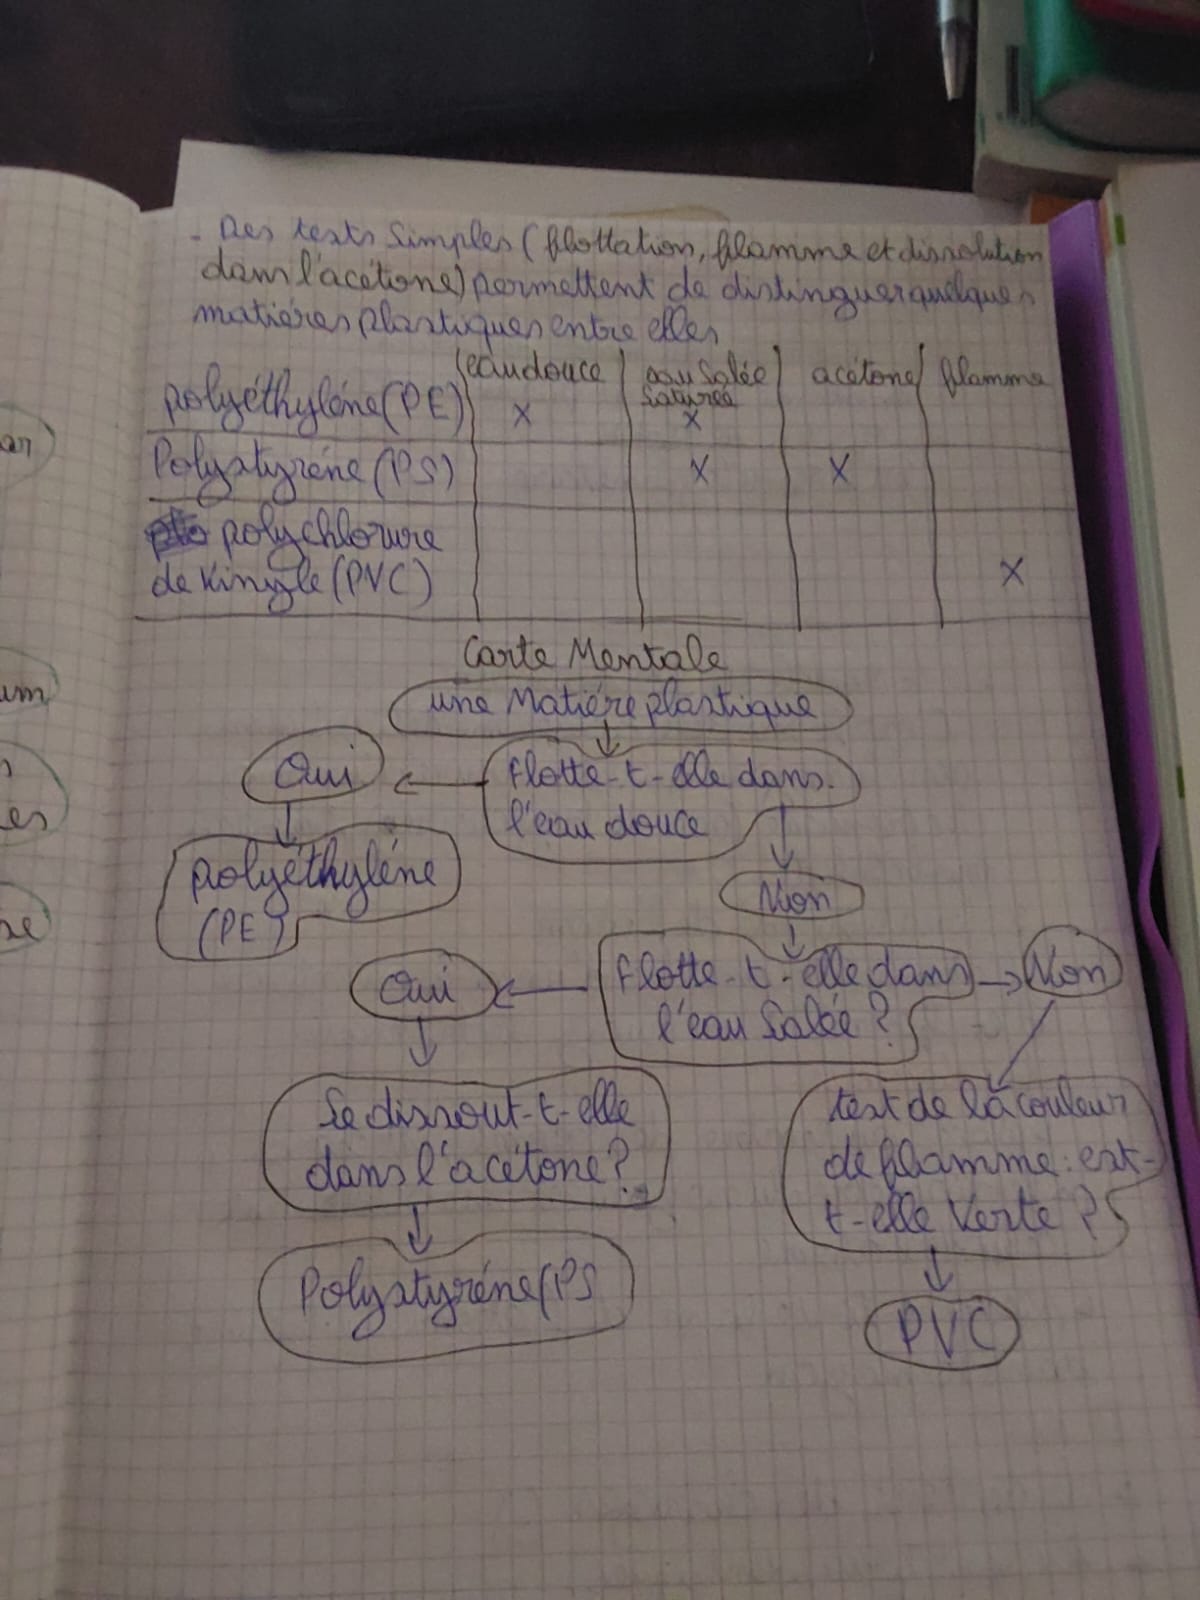 - Des tests Simples (flottation, flamme et dissolution
dans l'acétone) permettent de distinguer quelques
matières plastiques entre elles
eau douce eau Salée Saturée acétone flamme
polyéthyléne (PE) X X
Polystyréne (PS) X X
polychlorure
de Vinyle (PVC) X
Carte Mentale
une Matiére plastique
Oui
flotte-t-elle dans
l'eau douce
polyéthyléne
(PE)
Non
Oui
flotte-t-elle dans
l'eau Salée ?
Non
Se dissout-t-elle
dans l'acétone ?
test de la couleur
de flamme : est-
t-elle Verte ?
Polystyréne (PS
PVC
um
es